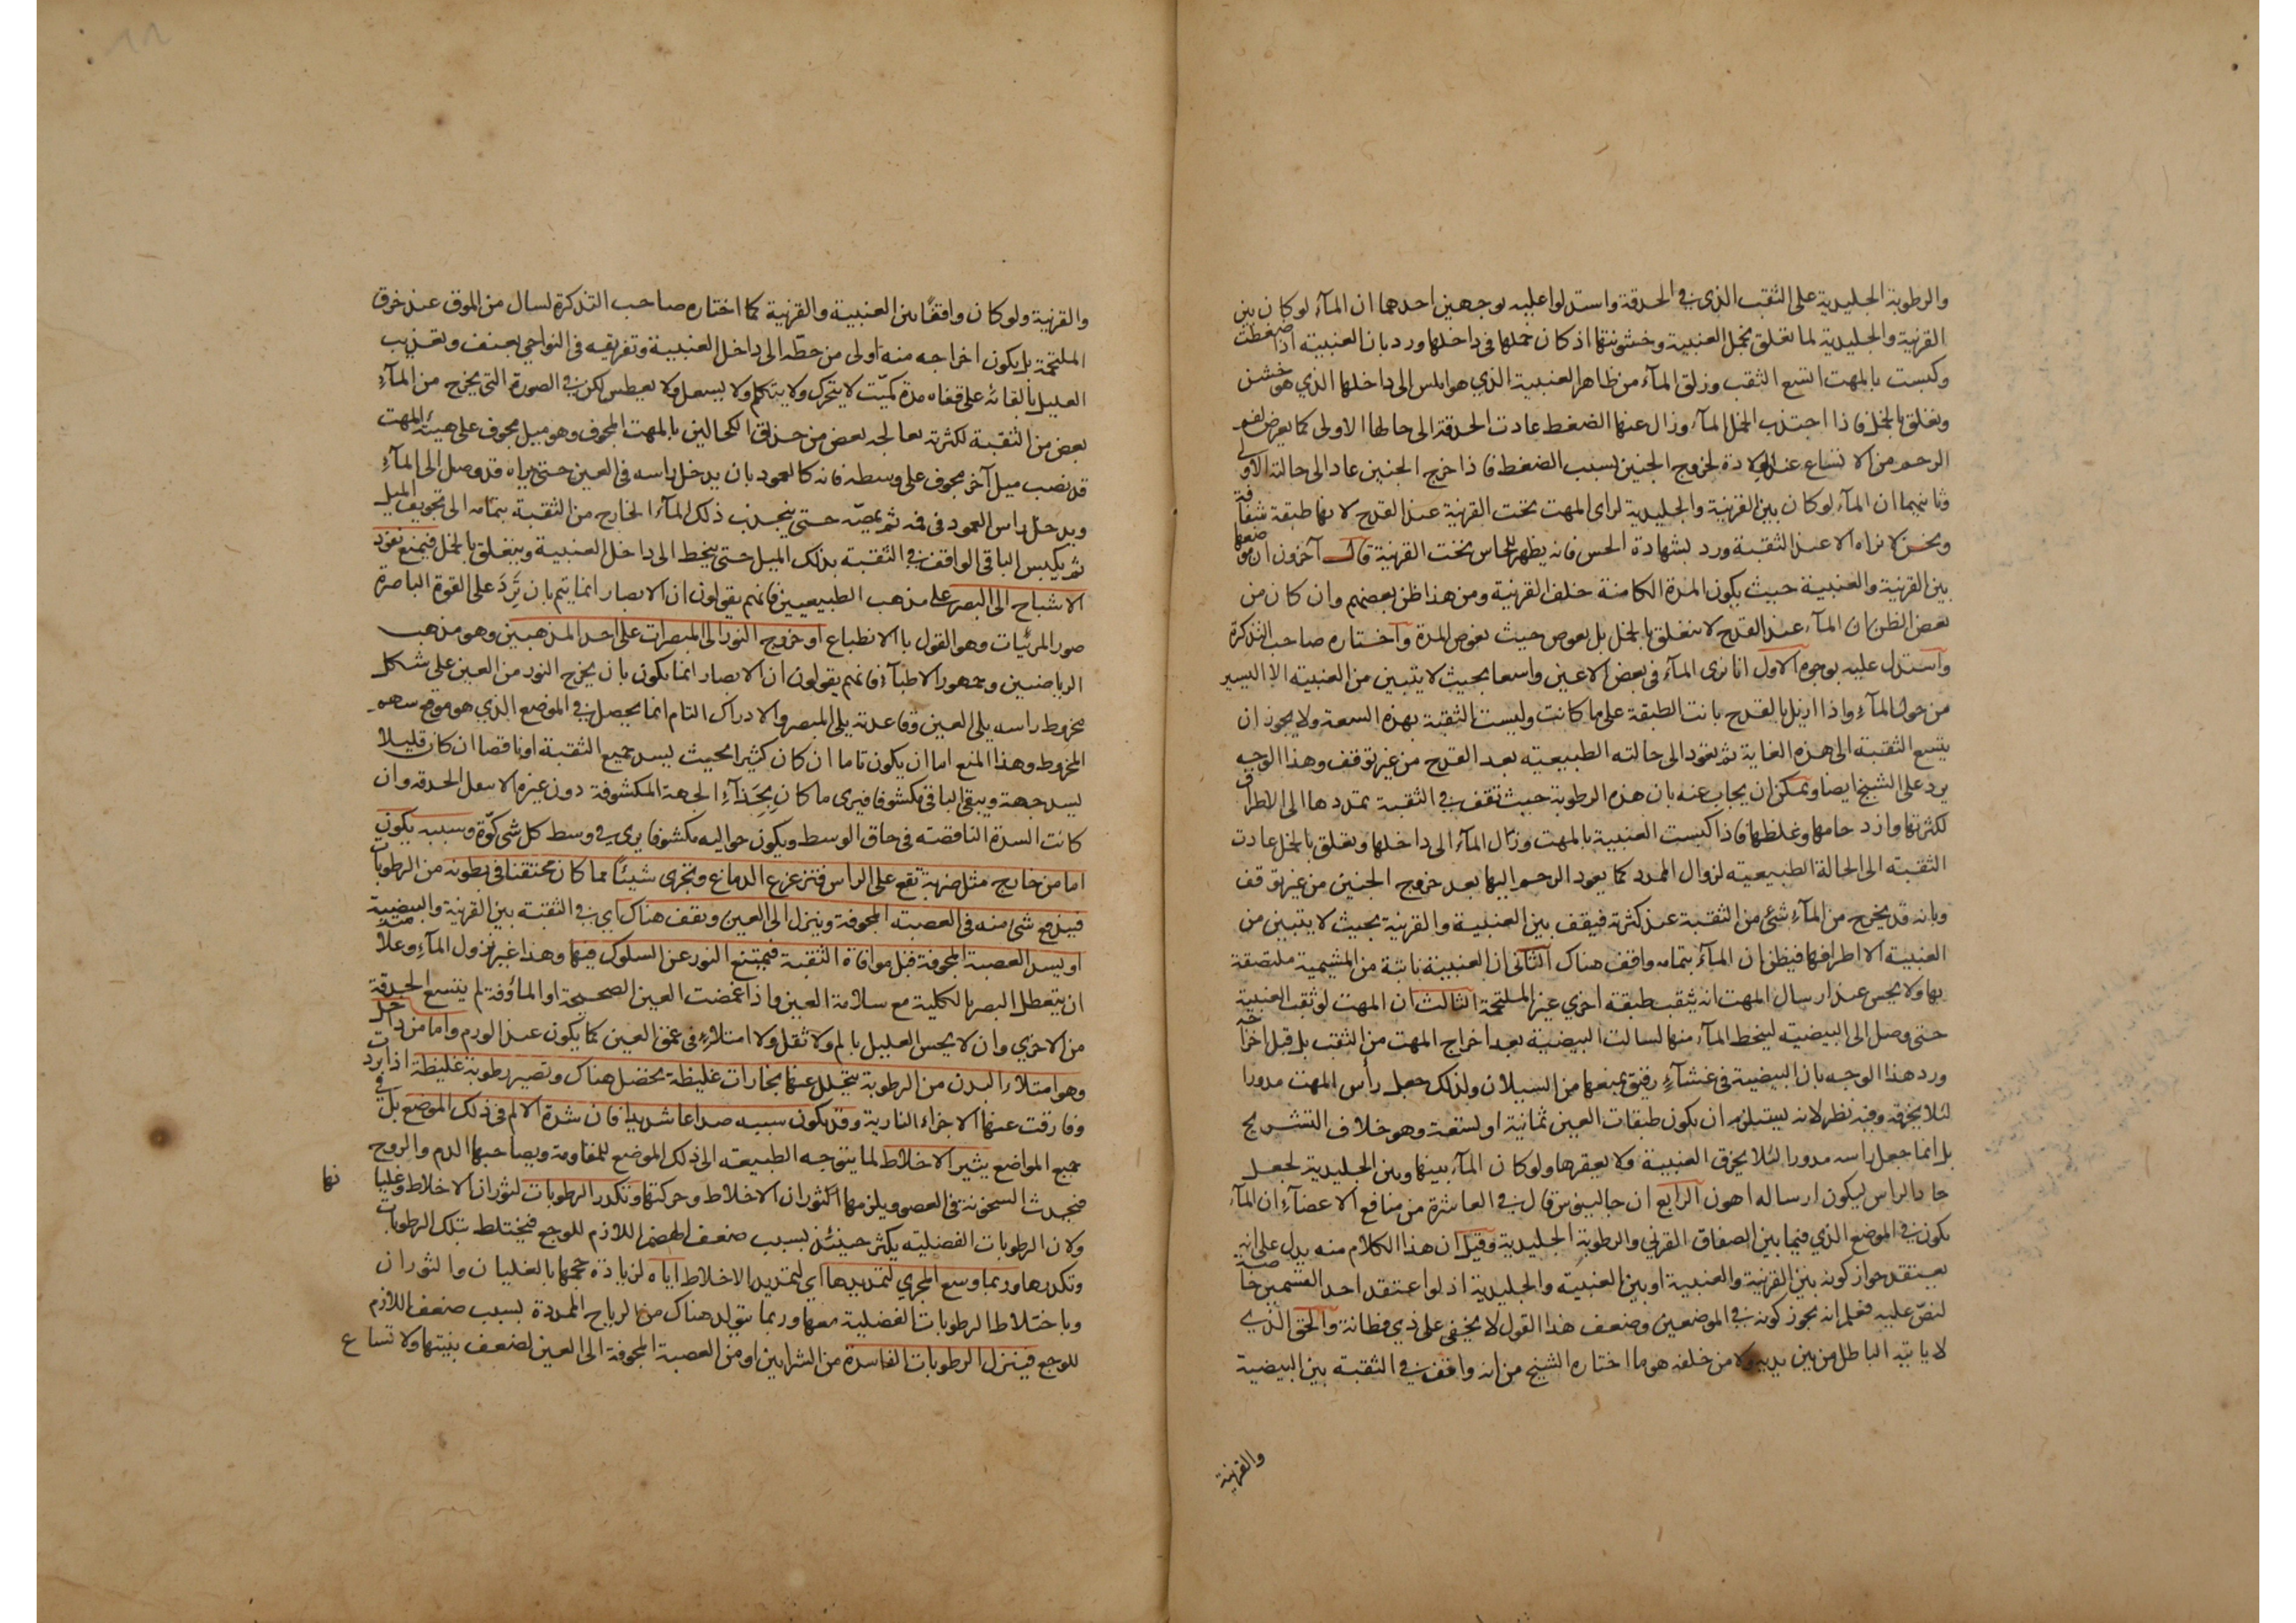 والرطوبة الجليدية على الثقب الذي في الحدقة واستدلوا عليه بوجهين احدهما ان المآء لو كان بين
القرنية والجليدية لما تعلق بخمل العنبية وخشونتها اذ كان خملها في داخلها ورد بان العنبية اذا ضغطت
وكبست بالمهت اتسع الثقب وزلق المآء من ظاهر العنبية الذي هو املس الى داخلها الذي هو خشن
وتعلق بالخمل فاذا اجتذب الخمل المآء وزال عنها الضغط عادت الحدقة الى حالها الاولى كما يعرض لفم
الرحم من الاتساع عند الولادة لخروج الجنين بسبب الضغط فاذا خرج الجنين عاد الى حالته الاولى
وثانيهما ان المآء لو كان بين القرنية والجليدية لراى المهت تحت القرنية عند القدح لانها طبقة شفافة
ونحن لا نراه الا عند الثقبة ورد بشهادة الحس فانه يظهر للحاس تحت القرنية قال آخرون ان موضعها
بين القرنية والعنبية حيث يكون المدة الكامنة خلف القرنية ومن هذا ظن بعضهم وان كان من
بعض الظن ان المآء عند القدح لا يتعلق بالخمل بل يغوص حيث يغوص المدة واختاره صاحب التذكرة
واستدل عليه بوجوه الاول انا نرى المآء في بعض الاعين واسعا بحيث لا يتبين من العنبية الا اليسير
من حول المآء واذا ازيل بالقدح بانت الطبقة على ما كانت وليست الثقبة بهذه السعة ولا يجوز ان
يتسع الثقبة الى هذه الغاية ثم تعود الى حالته الطبيعية بعد القدح من غير توقف وهذا الوجه
يرد على الشيخ ايضا ويمكن ان يجاب عنه بان هذه الرطوبة حيث تقف في الثقبة تمددها الى الاطراف
لكثرتها وازدحامها وغلظها فاذا كبست العنبية بالمهت وزال المآء الى داخلها وتعلق بالخمل عادت
الثقبة الى الحالة الطبيعية لزوال الممدد كما يعود الرحم اليها بعد خروج الجنين من غير توقف
وبانه قد يخرج من المآء شئ من الثقبة عند كثرته فيقف بين العنبية والقرنية بحيث لا يتبين من
العنبية الا اطرافها فيظن ان المآء بتمامه واقف هناك الثاني ان العنبية نابتة من المشيمية ملتصقة
بها ولا يحس عند ارسال المهت انه يثقب طبقة اخري غير الملتحمة الثالث ان المهت لو ثقب العنبية
حتى وصل الى البيضية ليخط المآء منها لسالت البيضية بعد اخراج المهت من الثقب بل قبل اخراجه
ورد هذا الوجه بان البيضية في غشآء رقيق يمنعها من السيلان ولذلك جعل رأس المهت مدورا
لئلا يخرقه وفيه نظر لانه يستلزم ان يكون طبقات العين ثمانية او تسعة وهو خلاف التشريح
بل انما جعل راسه مدورا لئلا يخرق العنبية ولا يعقرها ولو كان المآء بينها وبين الجليدية لجعل
حاد الراس ليكون ارساله اهون الرابع ان جالينوس قال في العاشرة من منافع الاعضآء ان المآء
يكون في الموضع الذي فيما بين الصفاق القرني والرطوبة الجليدية وقيل ان هذا الكلام منه يدل على انه
يعتقد جواز كونه بين القرنية والعنبية او بين العنبية والجليدية اذ لو اعتقد احد القسمين خاصة
لنص عليه فعلم انه يجوز كونه في الموضعين وضعف هذا القول لا يخفى على ذي فطانة والحق الذي
لا ياتيه الباطل من بين يديه ولا من خلفه هو ما اختاره الشيخ من انه واقف في الثقبة بين البيضية
والقرنية
والقرنية ولو كان واقفًا بين العنبية والقرنية كما اختاره صاحب التذكرة لسال من الموق عند خرق
الملتحمة بل يكون اخراجه منه اولى من حطّه الى داخل العنبية وتفريقه في النواحي بعنف وتعذيب
العليل بالقائه على قفاه مدة كميّت لا يتحرك ولا يتكلم ولا يسعل ولا يعطس لكن في الصورة التي يخرج من المآء
بعض من الثقبة لكثرته يعالجه بعض من حذاق الكحالين بالمهت المجوف وهو ميل مجوف على هيئة المهت
قد نصب ميل آخر مجوف على وسطه فانه كالعمود بان يدخل راسه في العين حتى يراه قد وصل الى المآء
ويدخل راس العمود في فمه ثم يمصّه حتى ينجذب ذلك المآء الخارج من الثقبة بتمامه الى تجويف الميل
ثم يكبس الباقي الواقف في الثقبة بذلك الميل حتى ينحط الى داخل العنبية ويتعلق بالخمل فيمنع نفوذ
الاشباح الى البصر على مذهب الطبيعيين فانهم يقولون ان الابصار انما يتم بان تَرِدَ على القوة الباصرة
صور المرئيات وهو القول بالانطباع او خروج النور الى المبصرات على احد المذهبين وهو مذهب
الرياضيين وجمهور الاطبآء فانهم يقولون ان الابصار انما يكون بان يخرج النور من العين على شكل
مخروط راسه يلى العين وقاعدته يلى المبصر والادراك التام انما يحصل في الموضع الذي هو موقع سهم
المخروط وهذا المنع اما ان يكون تاما ان كان كثيرا بحيث يسد جميع الثقبة او ناقصا ان كان قليلا
يسد جهة ويبقى الباقي مكشوفا فيرى ما كان بحِذآءِ الجهة المكشوفة دون غيره الا بنقل الحدقة وان
كانت السدة الناقصة في حاق الوسط ويكون حواليه مكشوفا يرى في وسط كل شي كوّة وسببه يكون
اما من خارج مثل ضربة تقع على الراس فتزعزع الدماغ وتجرى شيئًا مما كان محتقنا في بطونه من الرطوبات
فيندفع شئ منه في العصبة المجوفة وينزل الى العين ويقف هناك اي في الثقبة بين القرنية والبيضية
او يسد العصبة المجوفة قبل موافاة الثقبة فيمتنع النور عن السلوك فيها وهذا غير نزول المآء وعلامته
ان يتعطل البصر بالكلية مع سلامة العين واذا غمضت العين الصحيحة او الماؤفة لم يتسع الحدقة
من الاخري وان لا يحس العليل بالم ولا ثقل ولا امتلاءٍ في عمق العين كما يكون عند الورم واما من داخل
وهو امتلاء البدن من الرطوبة يتحلل عنها بخارات غليظة يحصل هناك وتصير رطوبة غليظة اذا بردت
وفارقت عنها الاجزاء النارية وقد يكون سببه صداعا شديدا فان شدة الالم في ذلك الموضع بل في
جميع المواضع يثير الاخلاط لما يتوجه الطبيعة الى ذلك الموضع للمقاومة ويصاحبها الدم والروح
فيحدث السخونة في العضو ويلزمها الثوران الاخلاط وحركتها وتكدر الرطوبات لثوران الاخلاط وغليانها
ولان الرطوبات الفضلية يكثر حينئذ بسبب ضعف الهضم اللازم للوجع فيختلط بتلك الرطوبات
وتكدرها وربما وسع المجرى لتمديدها اي لتمديد الاخلاط اياه لزيادة حجمها بالغليان والثوران
وباختلاط الرطوبات الفضلية معها وربما يتولد هناك من الرياح الممددة بسبب ضعف اللازم
للوجع فينزل الرطوبات الفاسدة من الشرايين او من العصبة المجوفة الى العين لضعف بنيتها ولاتساع